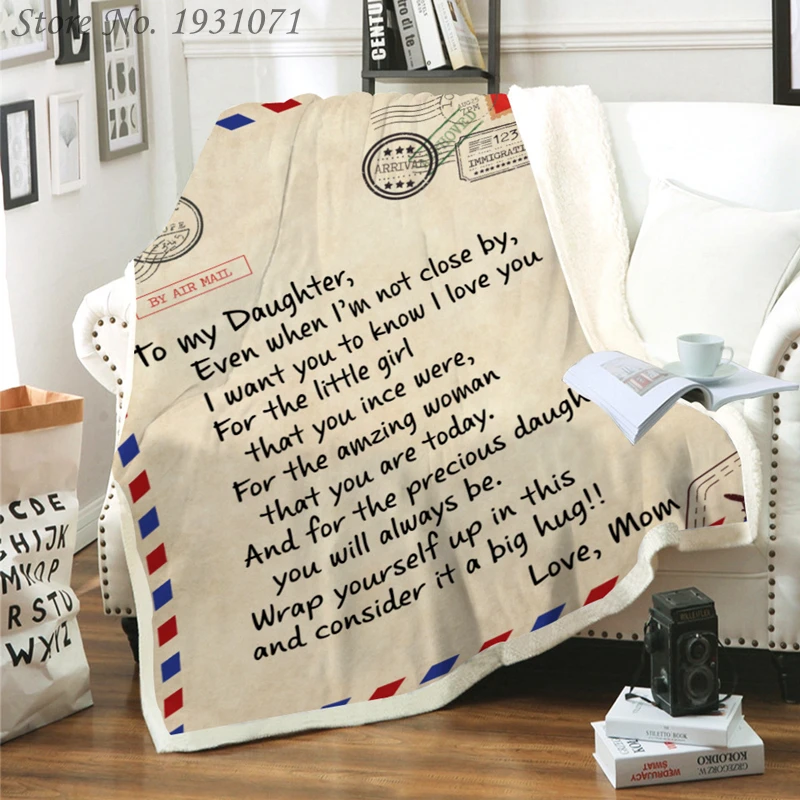 Store No. 1931071
CENTU
tro di te
ARRIVAL
123
IMMIGRATI
BY AIR MAIL
To my Daughter,
Even when I'm not close by,
I want you to know I love you
For the little girl
that you ince were,
For the amzing woman
that you are today.
And for the precious daugh
you will always be.
Wrap yourself up in this
and consider it a big hug!!
Love, Mom
CDE
GHIJK
R STU
WXYZ
ROLLEIFLEX
BOOK
KOŁODKO
GRZEGORZ W.
WĘDRUJĄCY
ŚWIAT